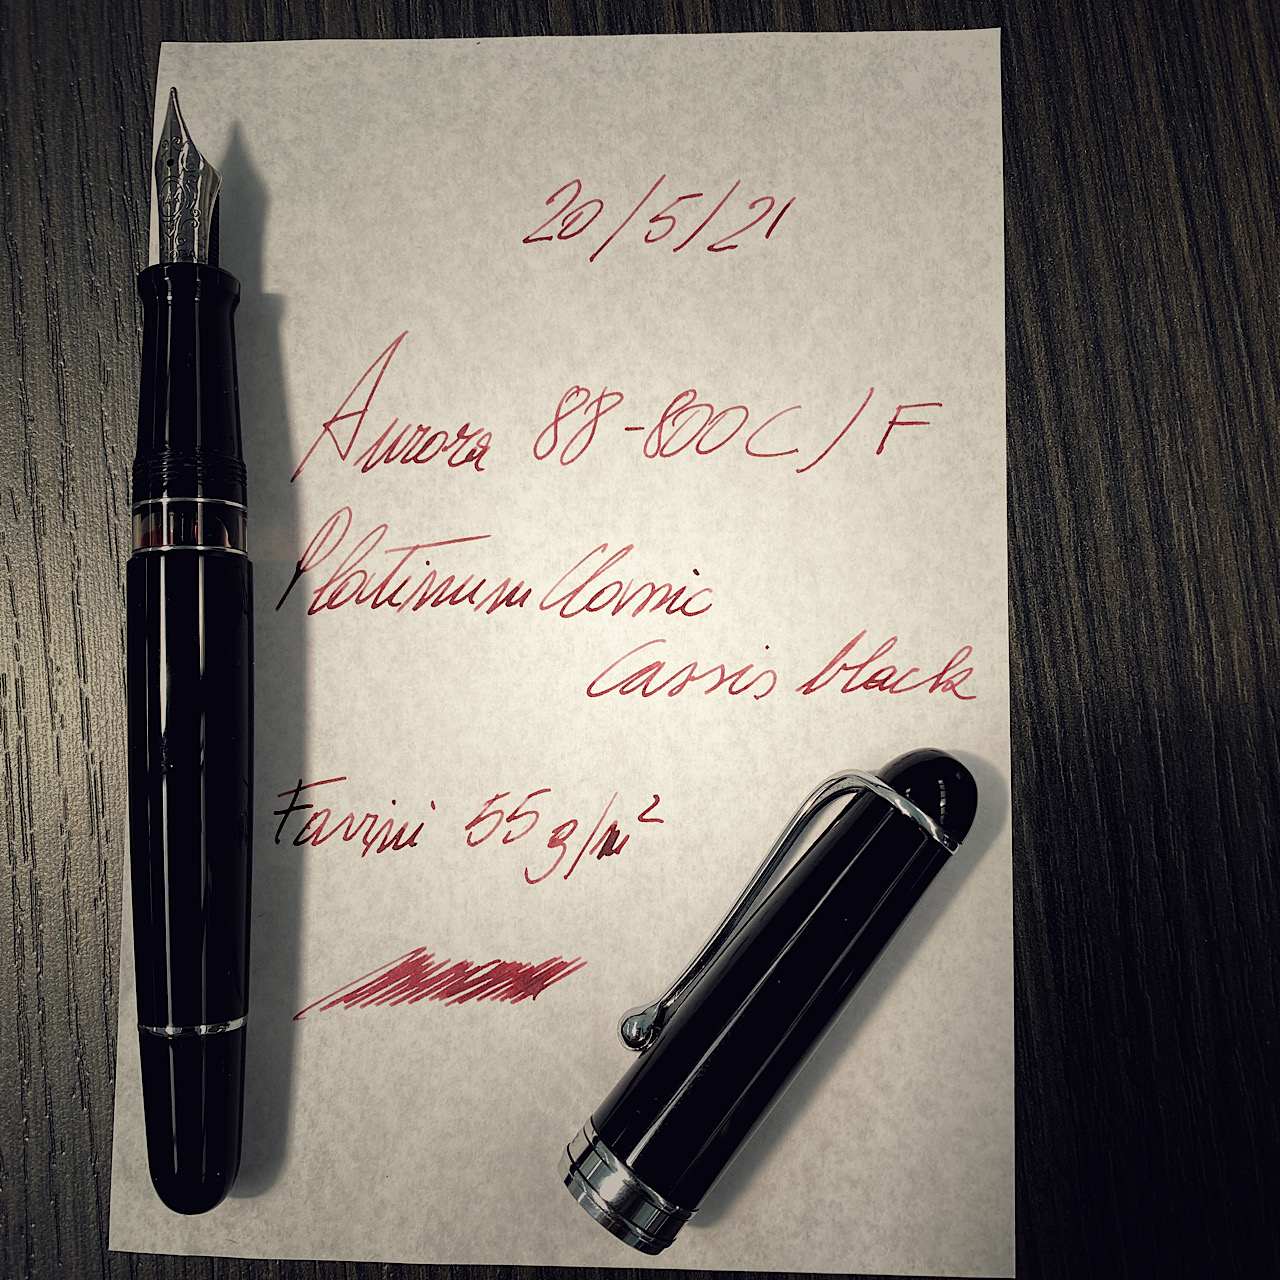 20/5/21
Aurora 88-800C/F
Platinum Classic
Cassis black
Favini 55 g/m²